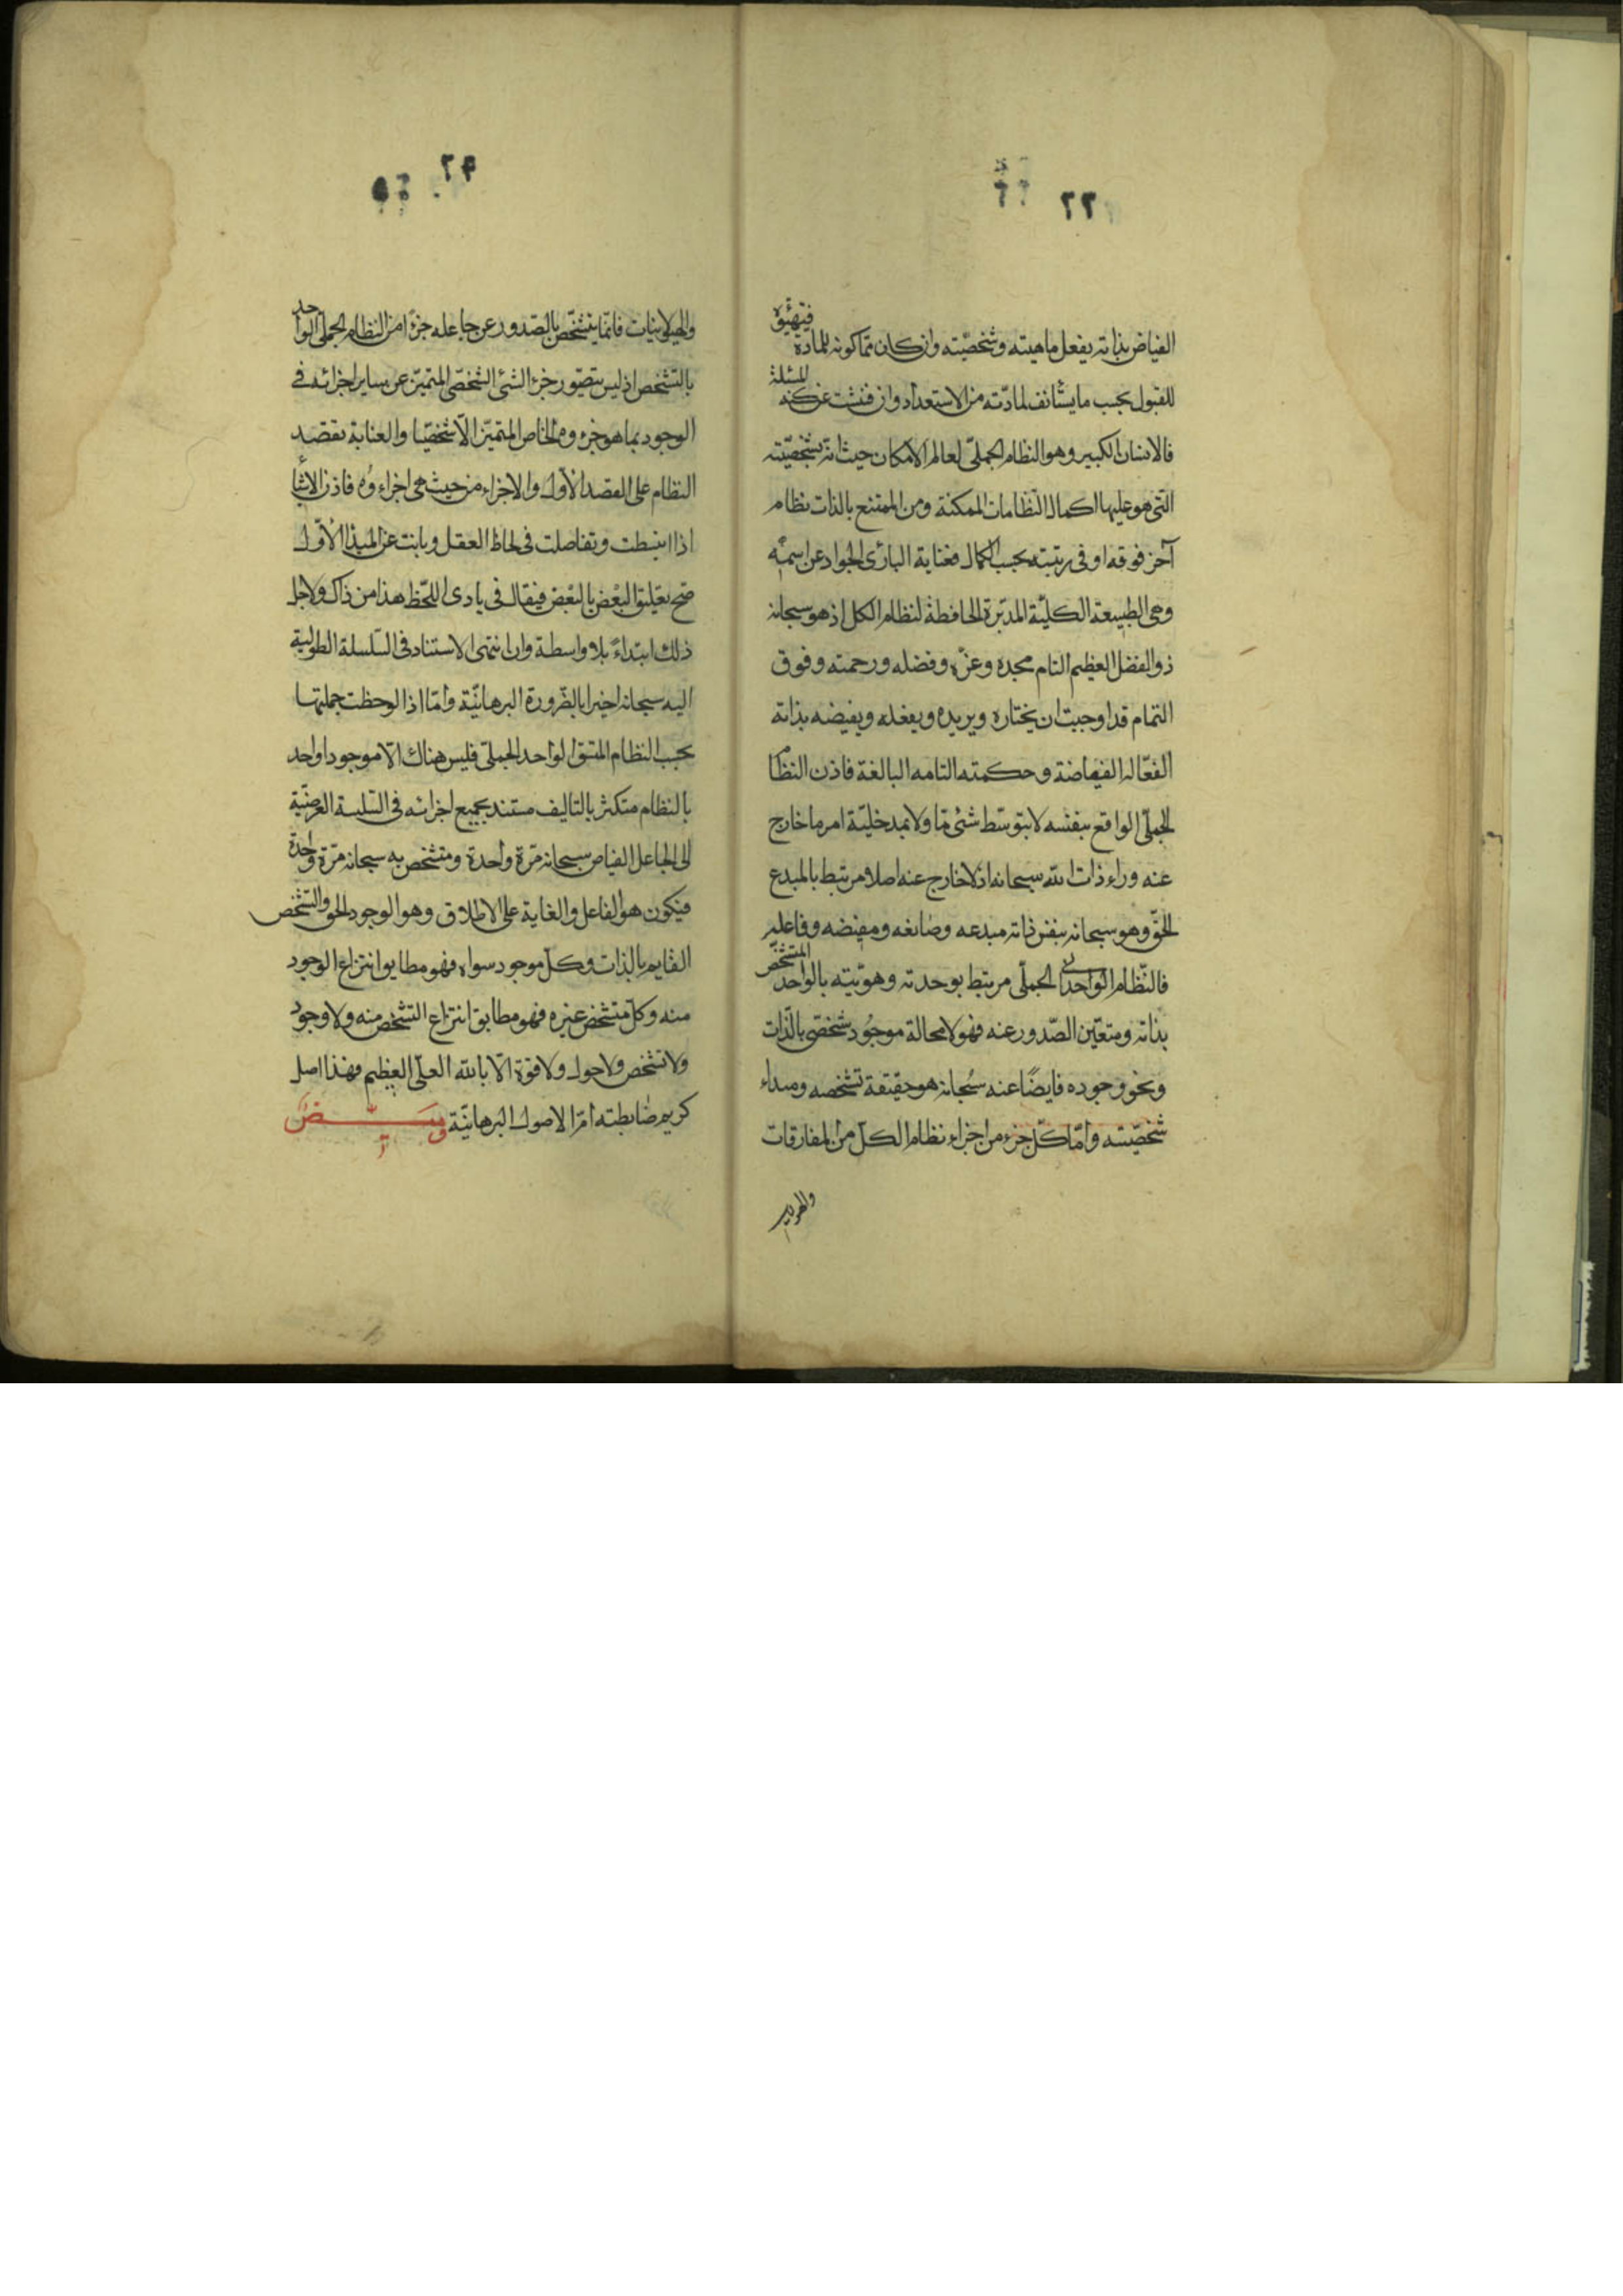 ٢٢
الفياض بذاته يفعل ماهيته وشخصيّته وان كان ممّا كونه للمادة فتهيّؤه
للقبول بحسب ما يستأنف لمادّته من الاستعداد وان فتشت عن كنه المسئلة
فالانسان الكبير وهو النظام الجملىّ لعالم الامكان حيث انّه بشخصيّته
الّتى هو عليها اكمل النّظامات الممكنة ومن الممتنع بالذات نظام
آخر فوقه او فى رتبته بحسب الكمال فعناية البارئ الجواد عن اسمه
وهى الطبيعة الكليّة المدبّرة الحافظة لنظام الكل اذ هو سبحانه
ذو الفضل العظيم التام مجده وعزّه وفضله ورحمته وفوق
التمام قد اوجبت ان يختاره ويريده ويفعله ويفيضه بذاته
الفعّاله الفياضة وحكمته التامه البالغة فاذن النظام
الجملّى الواقع بنفسه لا بتوسّط شئ مّا ولا بمدخليّة امر ما خارج
عنه وراء ذات الله سبحانه اذ لا خارج عنه اصلا مرتبط بالمبدع
الحقّ وهو سبحانه بنفس ذاته مبدعه وصانعه ومفيضه وفاعله
فالنّظام الواحدانى الجملّى مرتبط بوحدته وهويّته بالواحد المتشخّص
بذاته ومتعيّن الصّدور عنه فهو لا محالة موجُود شخصّى بالذّات
ونحو وجوده فايضًا عنه سُبحانه هو حقيقة تشخصه ومبداء
شخصيّته وامّا كلّ جزء من اجزاء نظام الكلّ من المفارقات
٢٩
والهيولانيات فانّما يتشخّص بالصّدور عن جاعله جزءًا من النظام الجملّى الواحد
بالتّشخص اذ ليس يتصّور جزء الشئ الشخصّى المتميّز عن ساير اجزائه فى
الوجود بما هو جزءه الخاص المتميّز الّا شخصّيا والعناية تقصد
النظام على القصد الاوّل والاجزاء من حيث هى اجزاءُه فاذن الاشيا
اذا انبسطت وتفاصلت فى لحاظ العقل وبانت عن المبدأ الاُوّل
صّح تعليق البعْض بالبعْض فيقال فى بادى اللحّظ هذا من ذاك ولاجل
ذلك ابتداءً بلا واسطة وان انتهى الاستناد فى السّلسلة الطوليّة
اليه سبحانه اخيرا بالضّرورة البرهانيّة وامّا اذا لوحظت جملتها
بحسب النظام المتسق الواحد الجملّى فليس هناك الّا موجود واحد
بالنظام متكثر بالتاليف مستند بجميع اجزائه فى السّلسلة العرضيّة
الى الجاعل الفياض سبحانه مّرة واحدة ومتشخص به سبحانه مّرة واحدة
فيكون هو الفاعل والغاية على الاطلاق وهو الوجود الحق والتشخص
القايم بالذات وكلّ موجود سواه فهو مطابق انتزاع الوجود
منه وكلّ متشخص غيره فهو مطابق انتزاع التشخّص منه ولا وجود
ولا تشخص ولا حول ولا قوة الّا بالله العلّى العظيم فهذا اصل
كريم ضابطته امّ الاصول البرهانيّة وميــــض